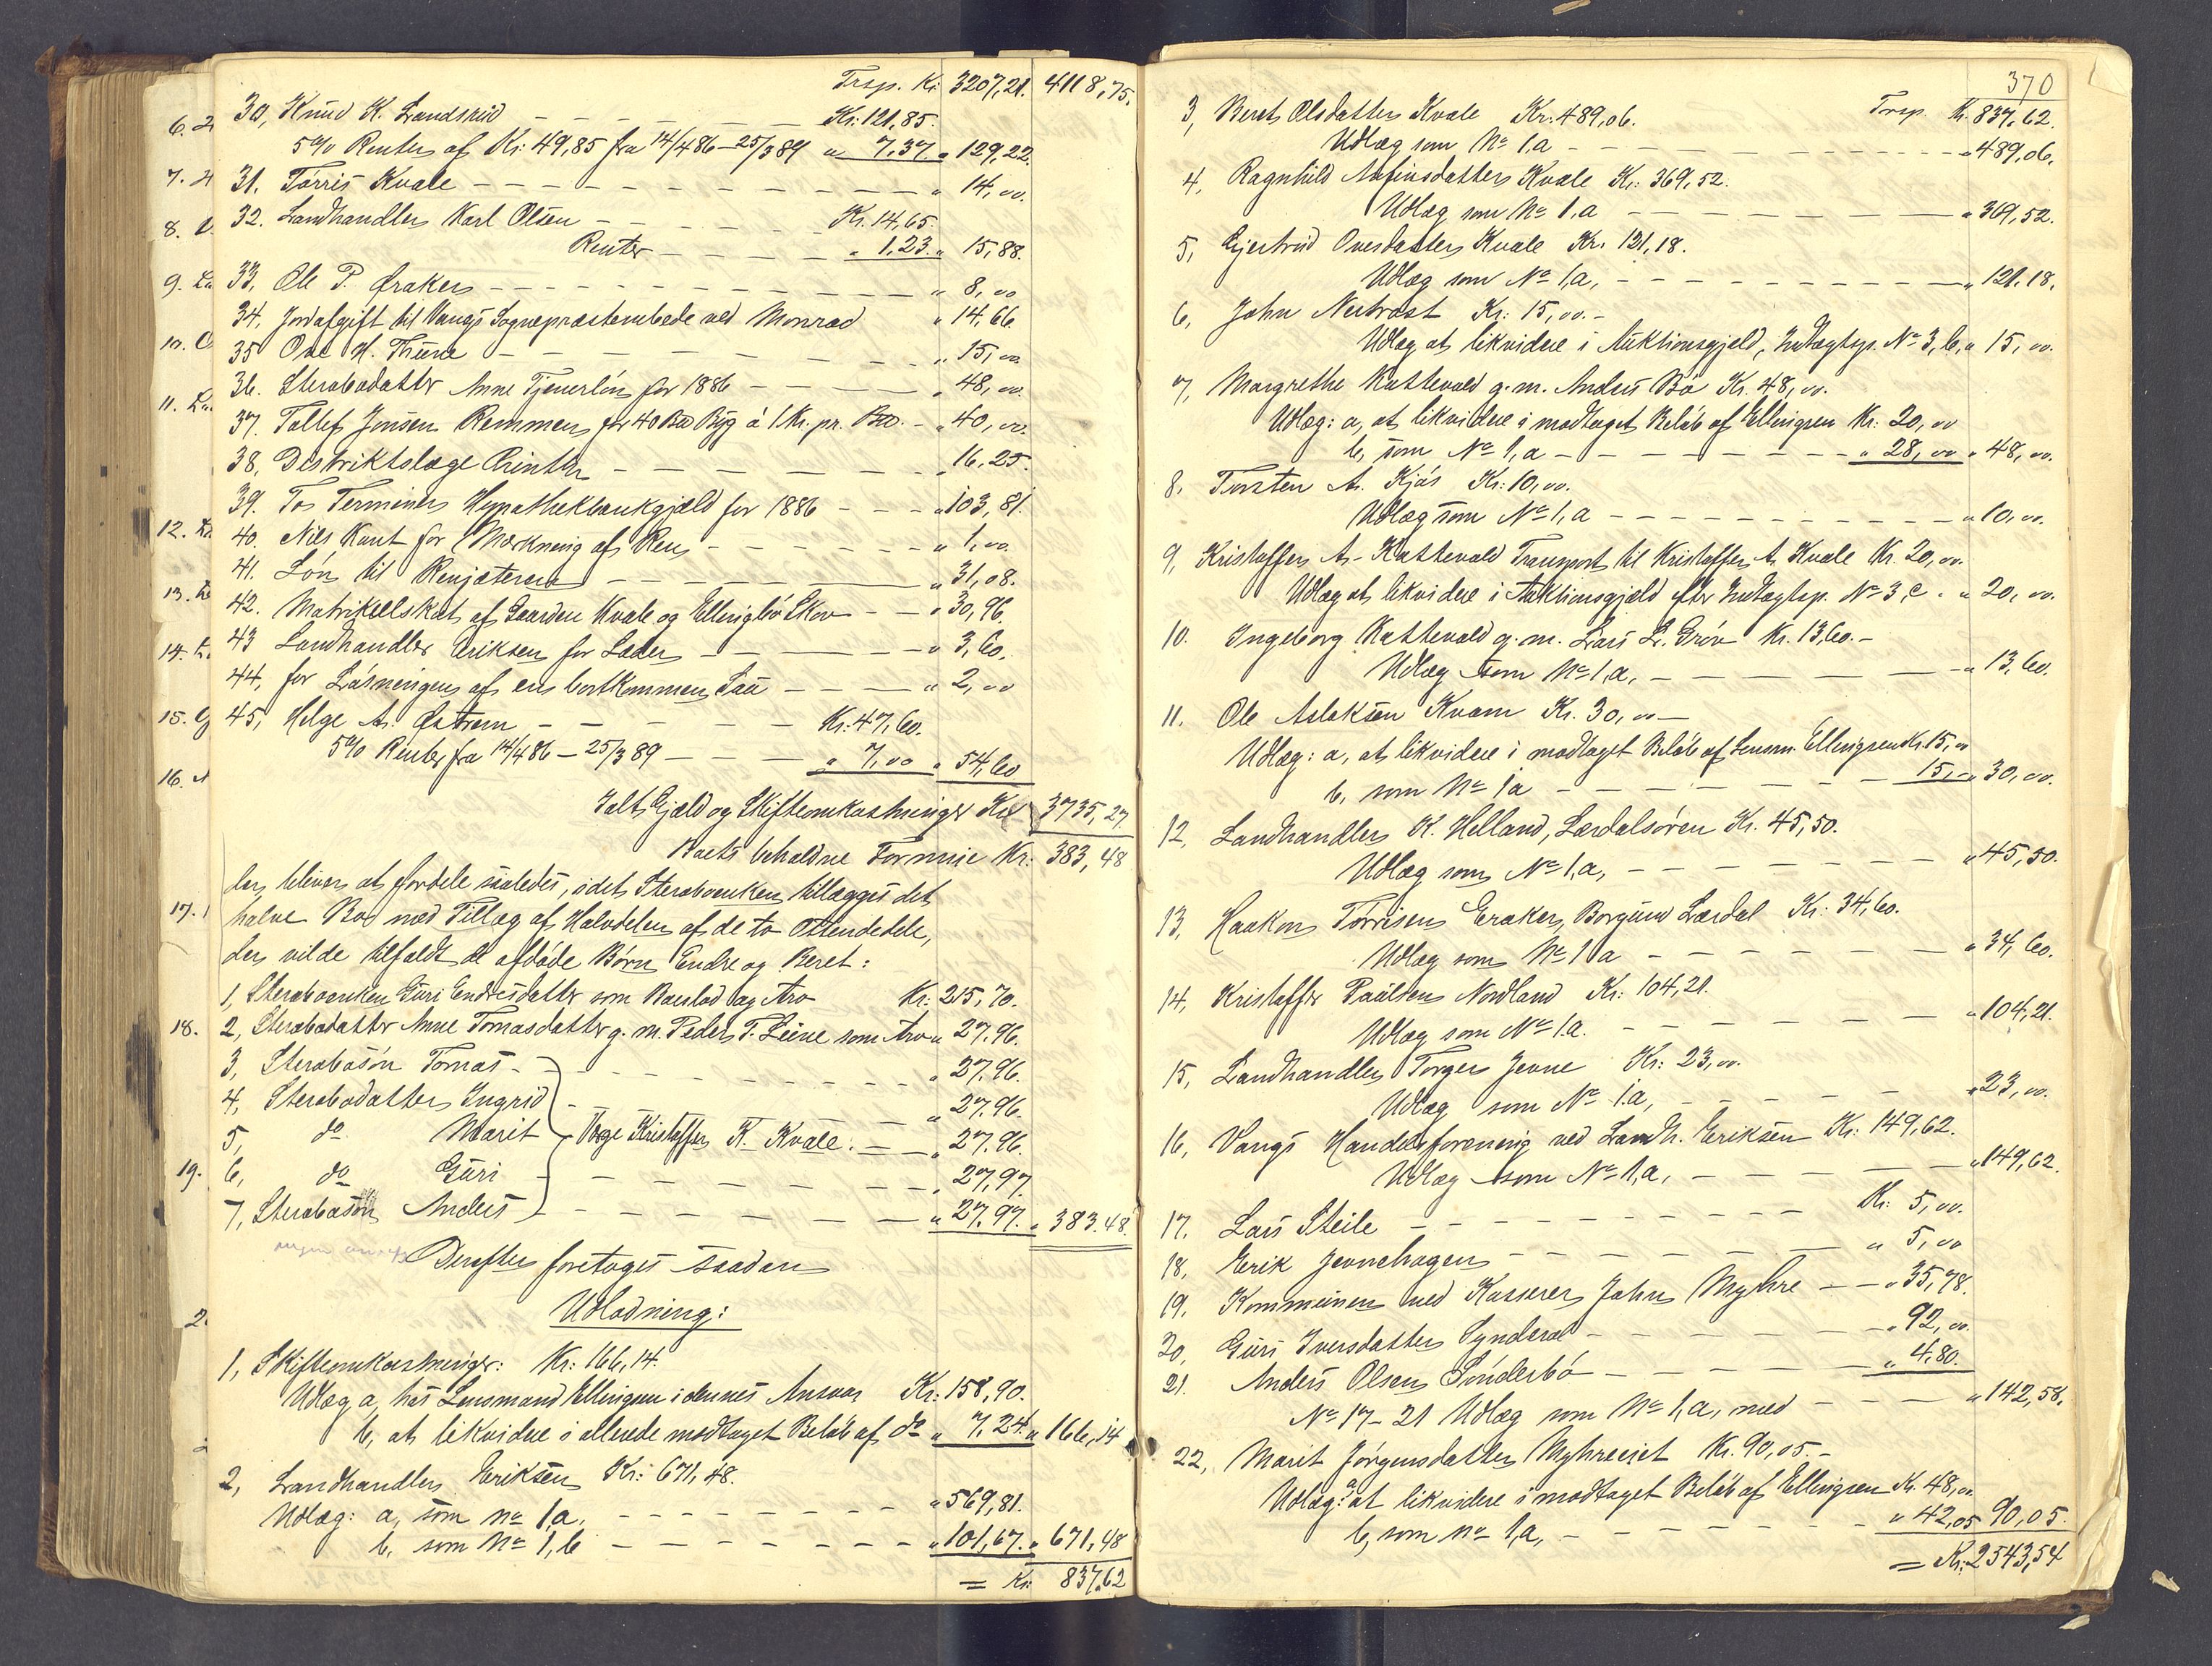 Trsp. Kr. 3207,21. 4118,75.
30, Knud K. Landsrud — — — Kr: 121,85.
5% Renter af Kr: 49,85 fra 14/4 86 – 25/3 89 " 7,37 " 129,22.
31. Torris Kvale — — — " 14,00.
32. Landhandler Karl Olsen — — Kr. 14,65.
Renter — — — " 1,23. " 15,88.
33, Ole P. Øraker — — — " 8,00
34, Jordafgift til Vangs Sognepræstembede ved Monrad " 14,66.
35 Ove H. Thune — — — " 15,00
36. Sterbodatter Anne Tjenerløn for 1886 — — " 48,00.
37. Tollef Jonsen Remmen for 40 Bd Byg á 1 Kr. pr. Bd. — " 40,00.
38, Distriktslæge Printz — — — " 16,25.
39. To Terminer Hypothekbankgjæld for 1886 — — " 103,81.
40. Nils Kant for Mærkning af Ren — — — " 1,00.
41. Løn til Renjæterne — — — " 31,08.
42. Matrikulskat af Gaarden Kvale og Ellingbø Skov — — " 30,96.
43 Landhandler Eriksen for Læder — — — " 3,60.
44, for Løsningen af en bortkommen Sau — — — " 2,00
45, Helge A. Øxtrem — — — Kr: 47,60.
5% Renter fra 14/4 86 – 25/3 89 — — — " 7,00 " 54,60
Ialt Gjæld og Skifteomkostninger Kr 3735,27
Boets beholdne Formue Kr: 383,48
der bliver at fordele saaledes, idet Sterboenken tillægges det
halve Bo med Tillæg af Halvdelen af de to Ottendedele,
der vilde tilfaldt de afdøde Børn Endre og Beret:
1, Sterboenken Guri Endresdatter som Boeslod og Arv Kr: 215,70.
2, Sterbodatter Anne Tomasdatter g. m. Peder T. Leine som Arv " 27,96.
3, Sterbosøn Tomas — — — " 27,96.
4, Sterbodatter Ingrid — — — " 27,96.
5, do Marit Værge Kristoffer K. Kvale. — — " 27,96.
6, do Guri — — — " 27,97.
7, Sterbosøn Anders — — — " 27,97. " 383.48.
Derefter foretoges saadan
Udlodning:
1, Skifteomkostninger: Kr: 166,14.
Udlæg a, hos Lensmand Ellingsen i dennes Ansvar Kr: 158,90.
b, at likvidere i allerede modtaget Beløb af do " 7,24. " 166,14
2, Landhandler Eriksen Kr: 671,48.
Udlæg: a, som No 1,a. — — — " 569,81.
b, som No 1,b — — — " 101,67. " 671,48
= Kr: 837,62
6. 2
7. H
8.
9. La
10. O
11. La
12.
13.
14.
15. G
16.
17.
18.
19.
2
370
Trsp. Kr. 837,62.
3, Beret Olsdatter Kvale Kr: 489,06.
Udlæg som No 1,a — — — " 489,06.
4, Ragnhild Anfinsdatter Kvale Kr: 369,52.
Udlæg som No 1,a — — — " 369,52.
5, Gjertrud Ovesdatter Kvale Kr. 121,18.
Udlæg som No 1,a, — — — " 121,18.
6, John Neubrost Kr: 15,00. –
Udlæg at likvidere i Auktionsgjæld, Indtægtsp. No 3,b, " 15,00.
7, Margrethe Kattevold g. m. Anders Bø Kr. 48,00.
Udlæg: a, at likvidere i modtaget Beløb af Ellingsen Kr: 20,00
b, som No 1,a — — — " 28,00 " 48,00.
8. Torsten A. Kjøs Kr: 10,00.
Udlæg som No 1,a — — — " 10,00.
9, Kristoffer A. Kattevold Transport til Kristoffer A. Kvale Kr. 20,00.
Udlæg at likvidere i Auktionsgjæld efter Indtægtsp. No 3,c. " 20,00.
10. Ingeborg Kattevold g. m. Lars L. Grøv Kr. 13,60. –
Udlæg som No 1,a, — — — " 13,60.
11. Ole Aslaksen Kvam Kr. 30,00 —
Udlæg: a, at likvidere i modtaget Beløb af Lensm. Ellingsen Kr. 15,00
b, som No 1a — — — 15,— " 30,00.
12, Landhandler K. Helland, Lærdalsøren Kr. 45,50.
Udlæg som No 1,a, — — — " 45,50.
13, Haakon Torrisen Eraker, Borgund Lærdal Kr: 34,60.
Udlæg som No 1a — — — " 34,60.
14, Kristoffer Paulsen Nordland Kr: 104,21.
Udlæg som No 1a. — — — " 104,21.
15, Landhandler Torger Jevne Kr: 23,00.
Udlæg som No 1,a, — — — " 23,00.
16, Vangs Handelsforening ved Landh. Eriksen Kr: 149,62.
Udlæg som No 1,a, — — — " 149,62.
17. Lars Steile — — — Kr: 5,00.
18, Erik Jevnehagen — — — " 5,00
19, Kommunen ved Kasserer John Myhre — — " 35,78.
20, Guri Iversdatter Synderæl — — — " 92,00.
21. Anders Olsen Sønderbø — — — " 4.80.
No 17 – 21 Udlæg som No 1,a, med — — — " 142,58.
22, Marit Jørgensdatter Myhreeiet Kr. 90,05 –
Udlæg: a, at likvidere i modtaget Beløb af Ellingsen Kr. 48,00.
b, som No 1,a, — — — " 42,05 90,05.
= Kr: 2543,54